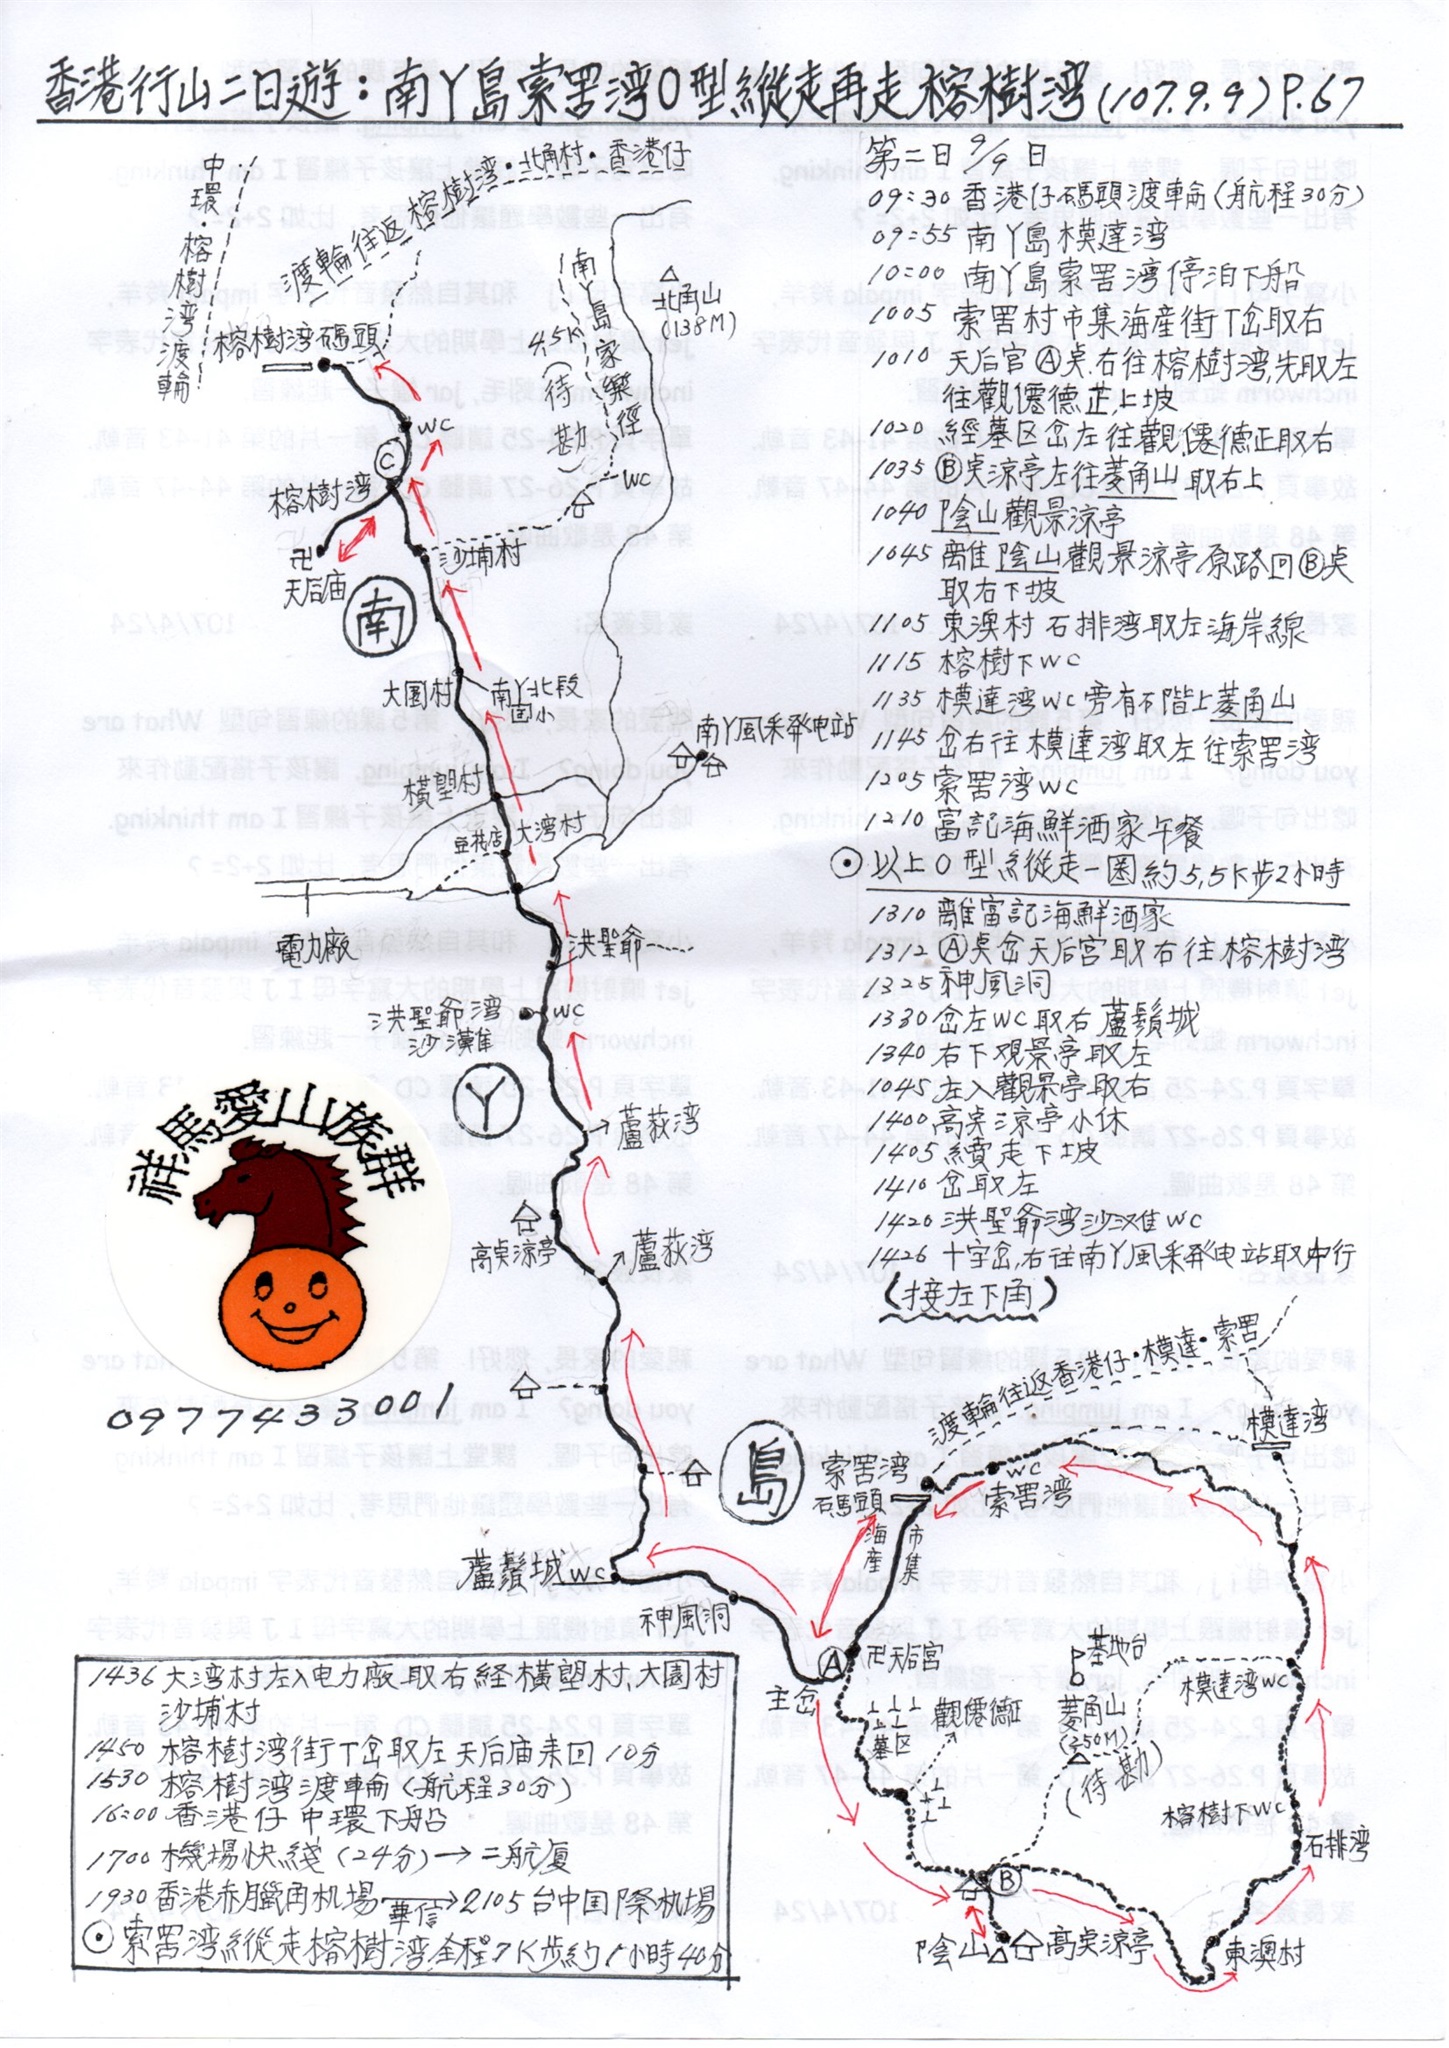 香港行山二日遊:南丫島索罟湾O型縱走再走榕樹湾(107.9.9)P.67
中環·榕樹湾渡輪
渡輪往返榕樹湾·北角村·香港仔
榕樹湾碼頭
南丫島家樂徑
4.5K(待勘)
北角山
(138M)
WC
C
WC
榕樹湾
卍
天后庙
沙埔村
南
大園村
南丫北段
國小
南丫風采発电站
橫塱村
豆花店
大湾村
電力廠
洪聖爺
洪聖爺湾
沙灘
WC
丫
蘆荻湾
祥馬愛山族群
高奌涼亭
蘆荻湾
0977433001
島
蘆鬚城WC
神風洞
主岔
第二日 9/9日
09:30 香港仔碼頭渡輪(航程30分)
09:55 南丫島模達湾
10:00 南丫島索罟湾停泊下船
1005 索罟村市集海産街丅岔取右
1010 天后宮Ⓐ奌右往榕樹湾,先取左
往觀僊德芷上坡
1020 經墓区岔左往觀僊德正取右
1035 Ⓑ奌涼亭左往菱角山取右上
1040 陰山觀景涼亭
1045 離陰山觀景涼亭原路回Ⓑ奌
取右下坡
1105 東澳村 石排湾取左海岸線
1115 榕樹下WC
1135 模達湾WC旁有石階上菱角山
1145 岔右往模達湾取左往索罟湾
1205 索罟湾WC
1210 富記海鮮酒家午餐
⊙以上O型縱走一圈約5.5K步2小時
1310 離富記海鮮酒家
1312 Ⓐ奌岔天后宮取右往榕樹湾
1325 神風洞
1330 岔左WC取右蘆鬚城
1340 右下观景亭取左
1045 左入觀景亭取右
1400 高奌涼亭小休
1405 續走下坡
1410 岔取左
1420 洪聖爺湾沙灘WC
1426 十字岔,右往南丫風采発电站取中行
(接左下角)
渡輪往返香港仔·模達·索罟
模達湾
索罟湾
碼頭
WC
索罟湾
海産
市集
A
卍天后宮
墓区
觀僊德正
基地台
菱角山
(250M)
(待勘)
模達湾WC
榕樹下WC
石排湾
B
陰山
高奌涼亭
東澳村
1436 大湾村左入电力廠取右経橫塱村,大園村
沙埔村
1450 榕樹湾街丅岔取左天后庙来回10分
1530 榕樹湾渡輪(航程30分)
16:00 香港仔中環下船
1700 機場快綫(24分)→二航厦
1930 香港赤鱲角机场 華信→2105台中国际机场
⊙索罟湾縱走榕樹湾全程7K步約1小時40分